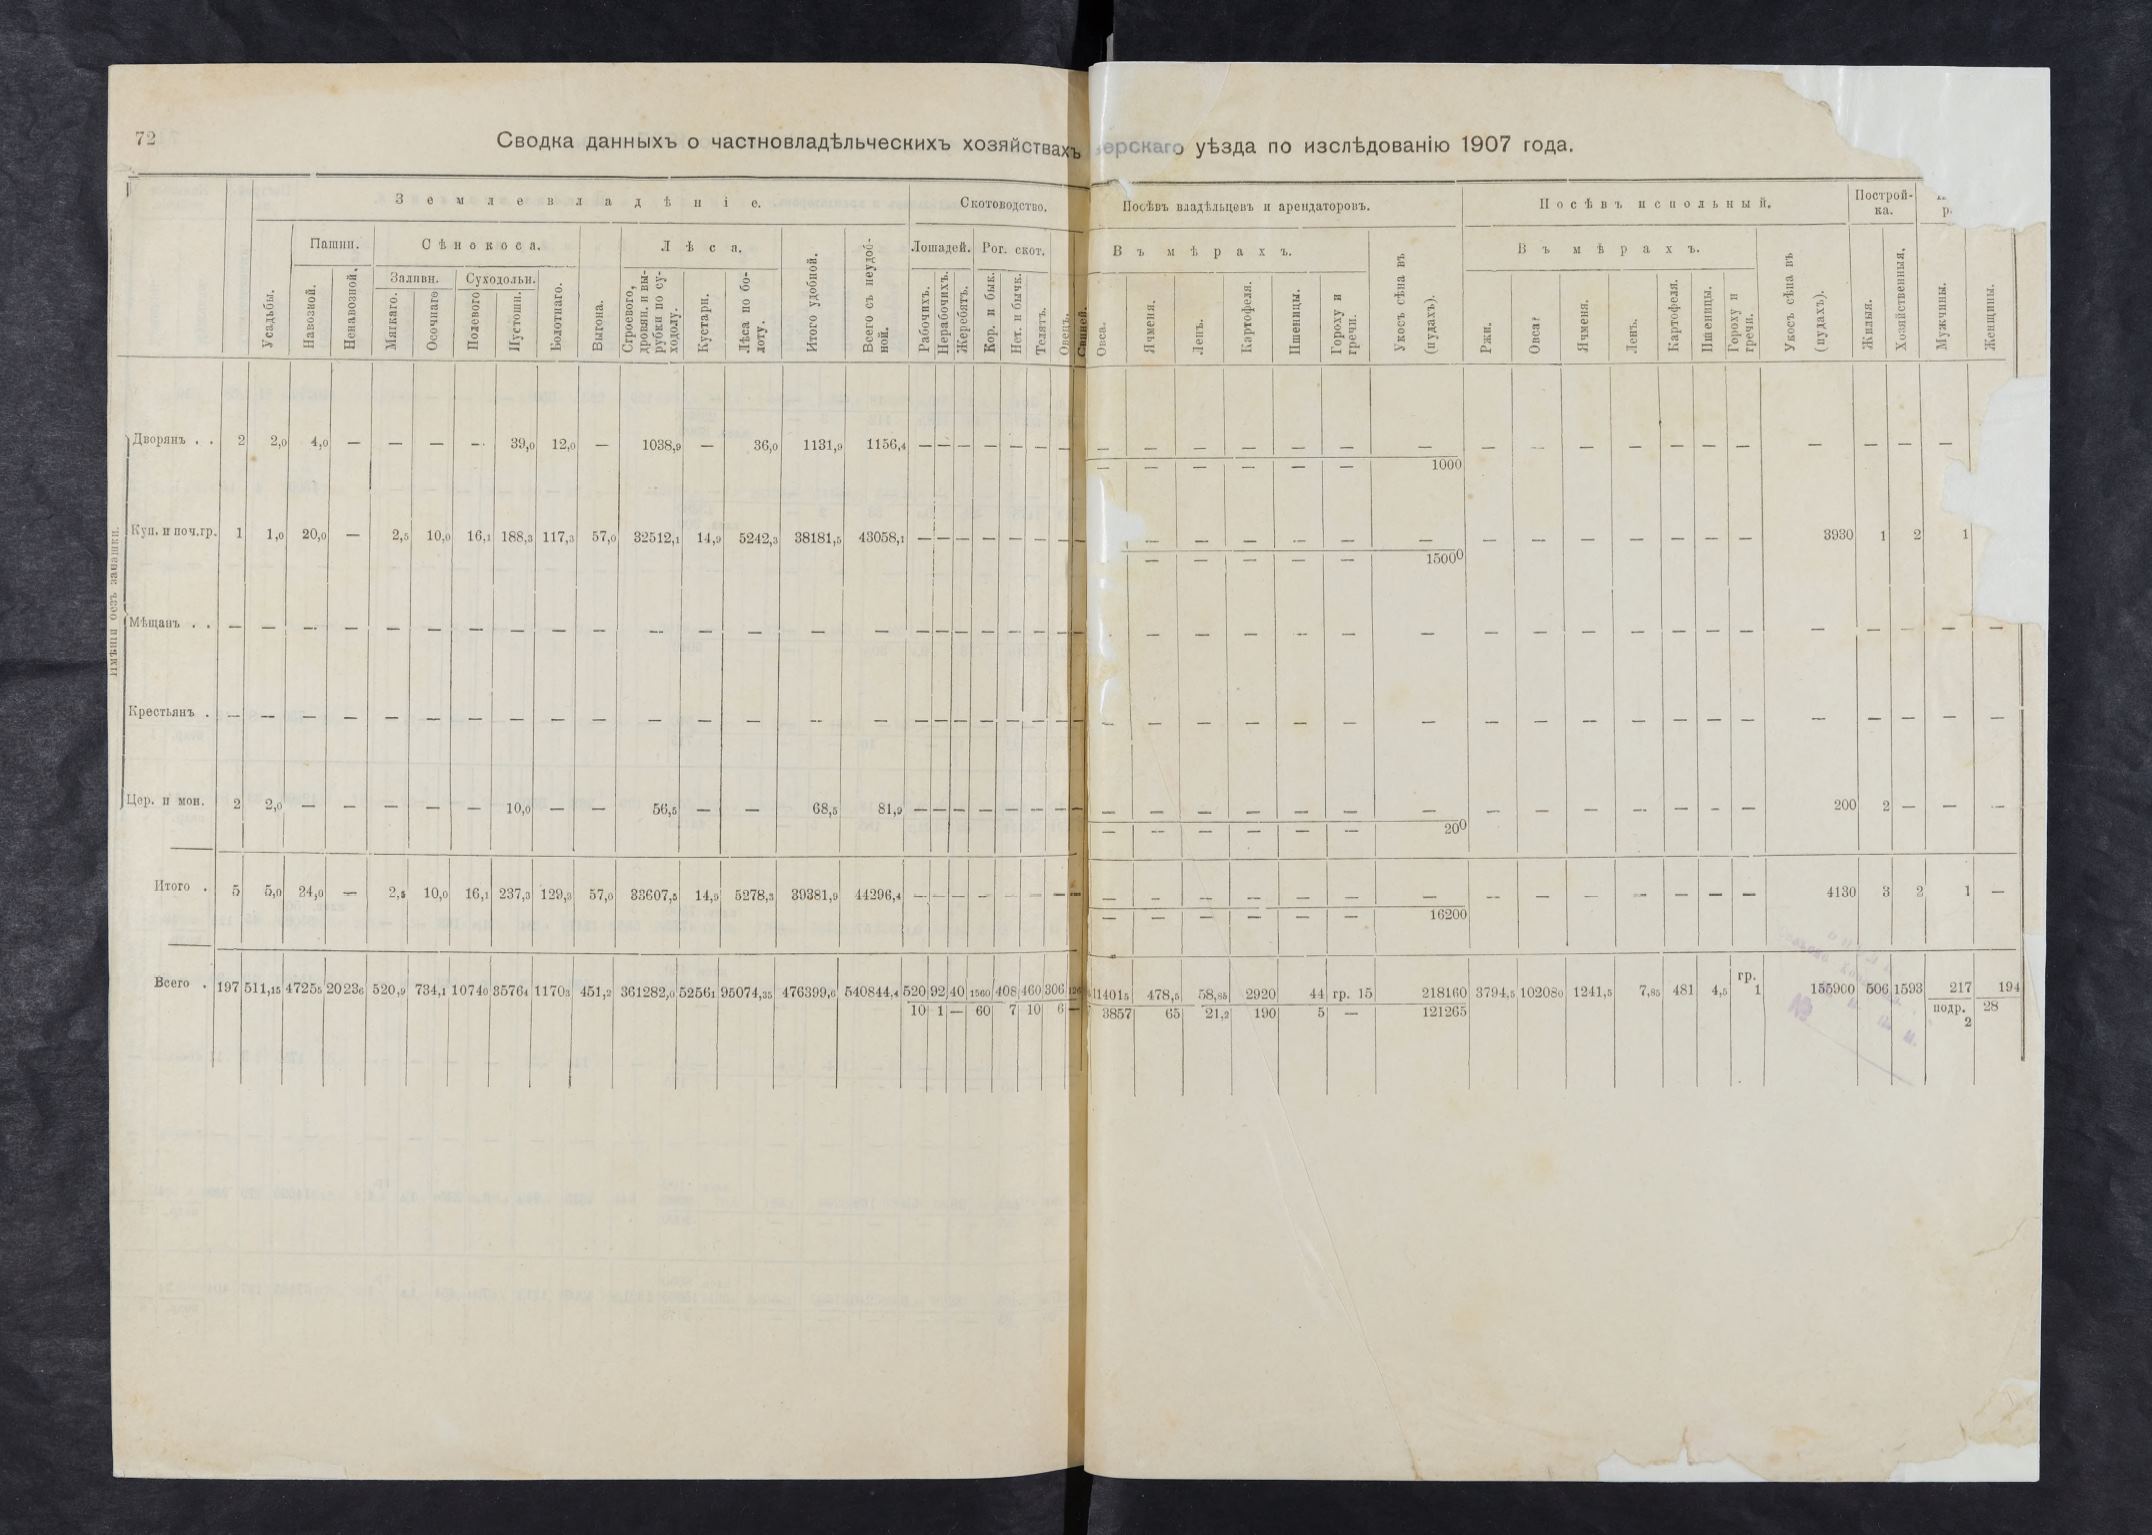 72
Сводка данныхъ о частновладѣльческихъ хозяйствахъ ерскаго уѣзда по изслѣдованію 1907 года.
Землевладѣніе. Скотоводство. Посѣвъ владѣльцевъ и арендаторовъ. Посѣвъ испольный. Построй-ка.
Пашни. Сѣнокоса. Лѣса. Лошадей. Рог. скот. Въ мѣрахъ. Въ мѣрахъ.
Заливн. Суходольн.
Усадьбы. Навозной. Ненавозной. Мягкаго. Осочнаго Полевого Пустошн. Болотнаго. Выгона. Строевого, дровян. и вы-рубки по су-ходолу. Кустарн. Лѣса по бо-лоту. Итого удобной. Всего съ неудоб-ной. Рабочихъ. Нерабочихъ. Жеребятъ. Кор. и бык. Нет. и бычк. Телятъ. Овецъ. Свиней. Овса. Ячменя. Ленъ. Картофеля. Пшеницы. Гороху и гречи. Укосъ сѣна въ (пудахъ). Ржи. Овса. Ячменя. Ленъ. Картофеля. Пшеницы. Гороху и гречи. Укосъ сѣна въ (пудахъ). Жилыя. Хозяйственныя. Мужчины. Женщины.
Имѣнія безъ запашки.
Дворянъ . . 2 2,0 4,0 — — — — 39,0 12,0 — 1038,9 — 36,0 1131,9 1156,4 — — — — — — — — — — — — — — — — — — — — — — — — —
— — — — — — 1000
Куп. и поч.гр. 1 1,0 20,0 — 2,5 10,0 16,1 188,3 117,3 57,0 32512,1 14,9 5242,3 38181,5 43058,1 — — — — — — — — — — — — — — — — — — — — — 3930 1 2 1
— — — — — 15000
Мѣщанъ . . — — — — — — — — — — — — — — — — — — — — — — — — — — — — — — — — — — — — — — — — —
Крестьянъ . — — — — — — — — — — — — — — — — — — — — — — — — — — — — — — — — — — — — — — — — — —
Цер. и мон. 2 2,0 — — — — — 10,0 — — 56,5 — — 68,5 81,9 — — — — — — — — — — — — — — — — — — — — — — 200 2 — — —
— — — — — — 200
Итого . 5 5,0 24,0 — 2,5 10,0 16,1 237,3 129,3 57,0 33607,5 14,9 5278,3 39381,9 44296,4 — — — — — — — — — — — — — — — — — — — — — — 4130 3 2 1 —
— — — — — — 16200
Всего . 197 511,15 47255 20236 520,9 734,1 10740 35764 11703 451,2 361282,0 52561 95074,35 476399,6 540844,4 520 92 40 1560 408 460 306 126 114015 478,5 58,85 2920 44 гр. 15 218160 3794,5 102080 1241,5 7,85 481 4,5 гр. 1 155900 506 1593 217 194
10 1 — 60 7 10 6 — 3857 65 21,2 190 5 — 121265 подр. 2 28
№